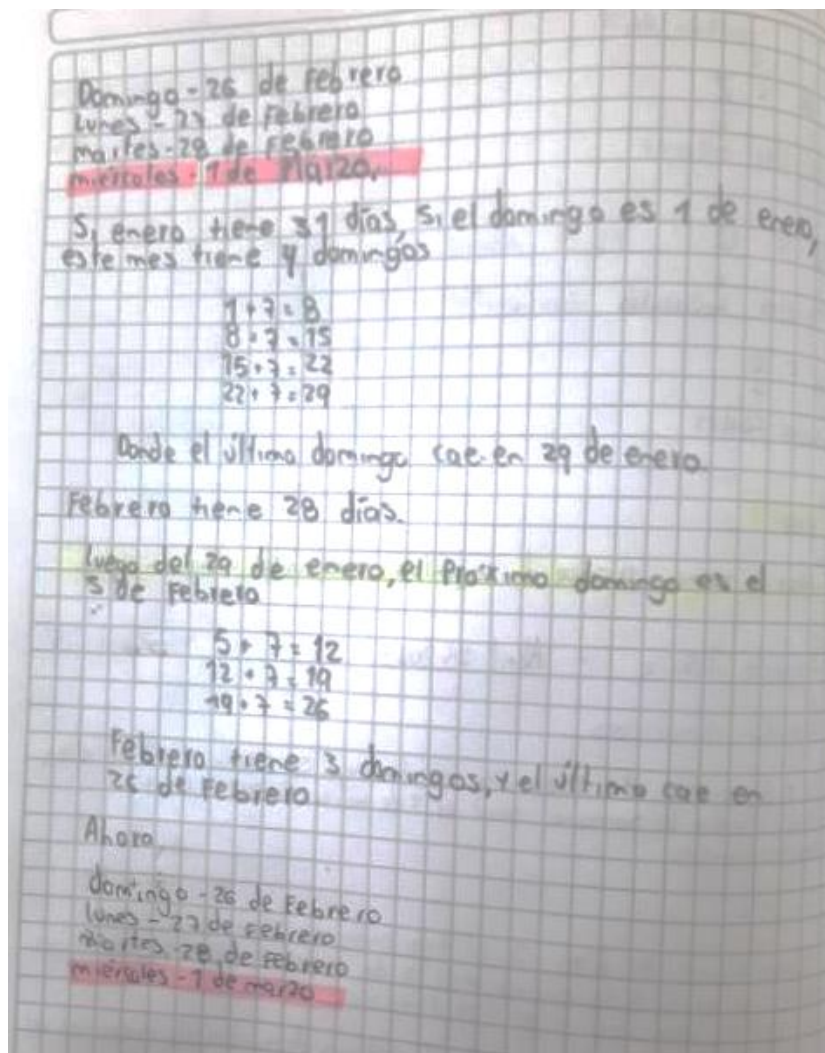 Domingo - 26 de Febrero
lunes - 27 de Febrero
martes - 28 de Febrero
miércoles - 1 de Marzo,
Si enero tiene 31 días, si el domingo es 1 de enero,
este mes tiene 4 domingos
1 + 7 = 8
8 + 7 = 15
15 + 7 = 22
22 + 7 = 29
Donde el último domingo cae en 29 de enero
Febrero tiene 28 días.
luego del 29 de enero, el Próximo domingo es el
5 de Febrero
5 + 7 = 12
12 + 7 = 19
19 + 7 = 26
Febrero tiene 3 domingos, y el último cae en
26 de Febrero
Ahora
domingo - 26 de Febrero
lunes - 27 de Febrero
martes - 28 de Febrero
miércoles - 1 de marzo